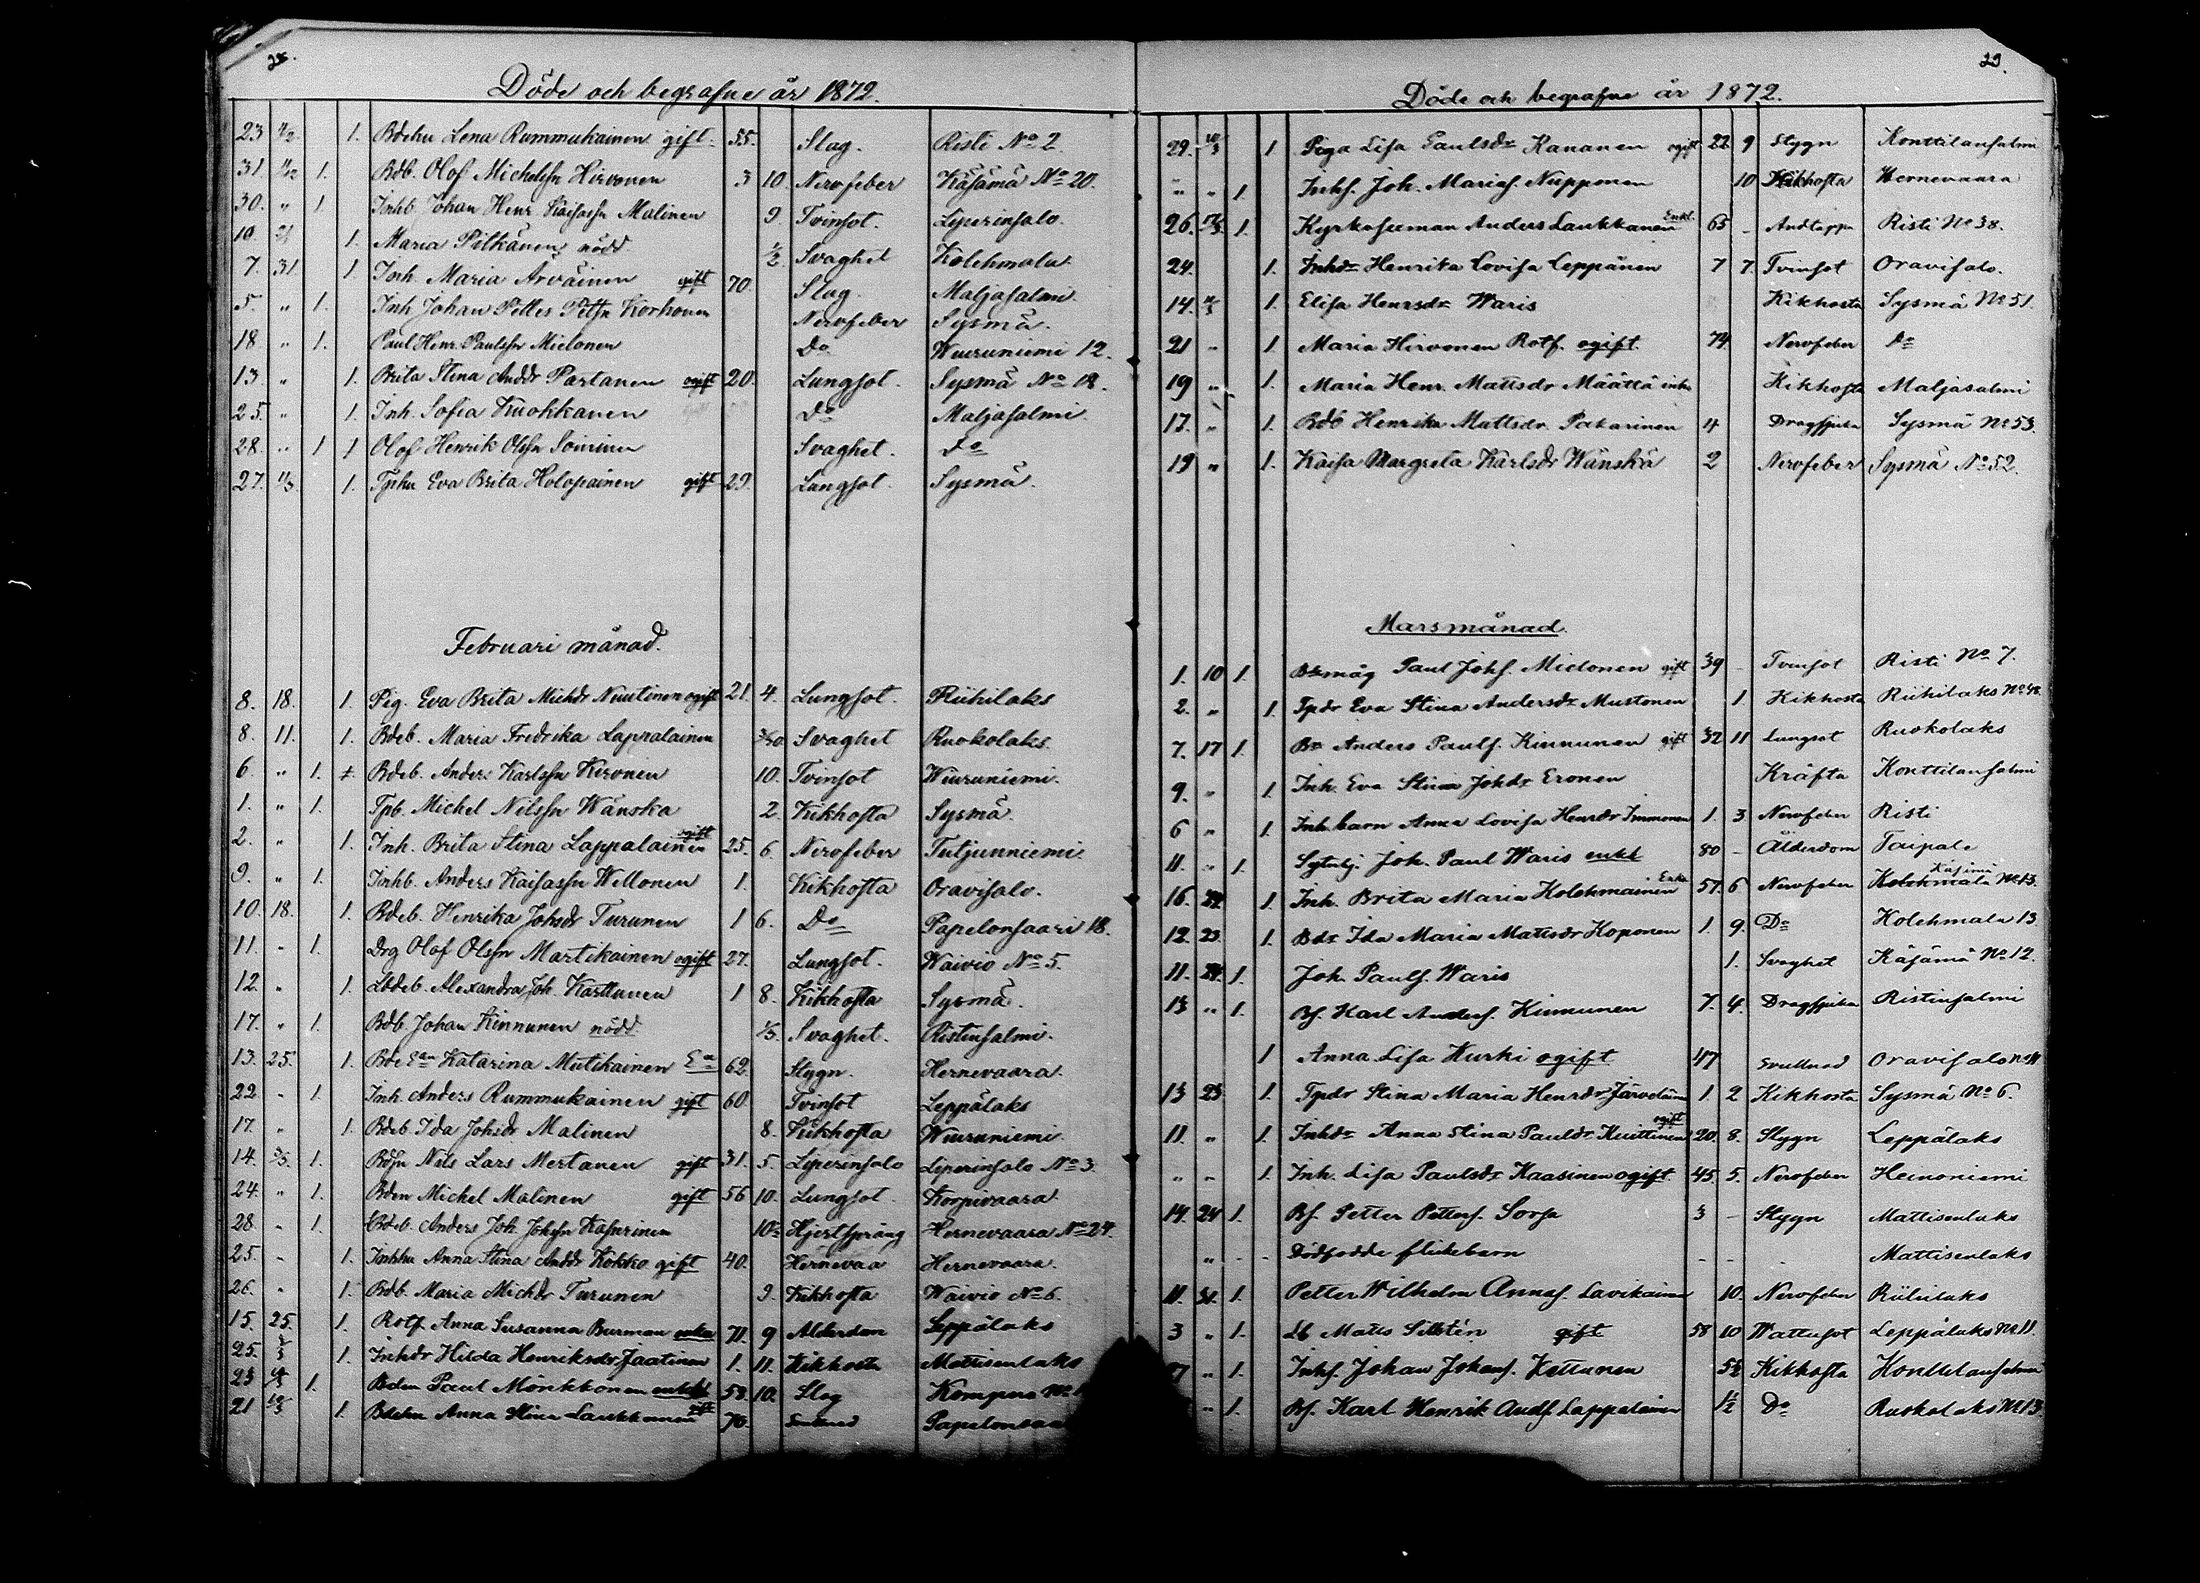 28.
Döde och begrafne år 1872.
23 4/2 1. Bdehu Lena Rummukainen gift. 55. Slag. Risti No 2.
31 4/12 1. Bdb. Olof Michelsn Hirvonen 3 10. Nervfeber Käsämä No 20.
30. " 1 Inhb Johan Henr Kaisasn Malinen 9 Tvinsot. Liperinsalo.
19. 21 1. Maria Pitkänen nödd 1/2 Svaghet Kolehmala
7. 31. 1 Inh. Maria Arväinen gift 70. Slag. Maljasalmi
5. " 1. Inh Johan Petter Pettsn Korhonen Nervfeber Sysmä.
18 " 1. Paul Henr. Paulssn Mielonen Do Wiuruniemi 12.
13. " 1. Brita Stina Anddr Partanen ogift 20. Lungsot. Sysmä No 18.
25. " 1. Inh. Sofia Kuokkanen Do Maljasalmi
28. " 1 1 Olof Henrik Olssn Soininen Svaghet. Do
27. 1/3 1. Tphu Eva Brita Holopainen gift 29. Lungsot. Sysmä.
Februari månad.
8. 18. 1. Pig. Eva Brita Michdr Nuutinen ogift 21. 4. Lungsot. Riihilaks
8. 11. 1. Bdeb. Maria Fredrika Lappalainen 3/30 Svaghet Ruokolaks.
6. " 1. Bdeb. Anders Karlssn Hirvonen 10. Tvinsot Wiuruniemi.
1. " 1. Tpb. Michel Nilssn Wänska 2. Kikhosta Sysmä.
2. " 1. Inh. Brita Stina Lappalainen ogift 25. 6. Nervfeber Tutjunniemi
9. " 1. Inhb. Anders Kaisassn Wellonen 1. Kikhosta Oravisalo.
10. 18. 1. Bdeb. Henrika Johsdr Turunen 1 6. Do Papelonsaari 18.
11. " 1. Drg Olof Olssn Martikainen ogift 27. Lungsot. Waivio No 5.
12. " 1. Lbdeb. Alexandra Joh. Karttunen 1 8. Kikhosta Sysmä.
17. " 1. Bdb. Johan Kinnunen nödd 1/3. Svaghet. Ristinsalmi.
13. 25. 1. Bde Ean Katarina Mutikainen Ea 62. Stygn. Hernevaara.
22. " 1. Inh. Anders Rummukainen gift 60. Tvinsot Leppälaks
17. " 1. Bdeb. Ida Johsdr Malinen 8. Kikhosta Wiuruniemi
14. 3/3. 1. Bdsn Nils Lars Mertanen gift 31. 5. Liperinsalo Liperinsalo No 3.
24. " 1. Bden Michel Malinen gift 56 10. Lungsot. Korpivaara.
28. " 1. Bdeb. Anders Joh. Johssn Kasurinen 10 1/2 Hjertsprång Hernevaara No 24.
25. " 1. Inhhu Anna Stina Anddr Kokko gift 40. Hernevaa Hernevaara.
26. " 1. Bdb. Maria Michdr Turunen 9. Kikhosta Waivio No 6.
15. 25. 1. Rotf Anna Susanna Burman enka 71. 9 Alderdom Leppälaks
25. 2/3 1. Inhdr Hilda Henriksdr Jaatinen 1. 11. Kikhosta Mattisenlaks
23 1. Bden Paul Mönkkönen enkl 58. 10. Slag Kompera No
21 10/3 1. Bdehu Anna Stina Laukkanen gift 70. Papelonsaa
29.
Döde och begrafne år 1872.
29. 10/3 1 Piga Lisa Paulsdr Kananen ogift 22 9 Stygn Konttilansalmi
" " 1. Inhs. Joh. Marias. Nupponen 10 Kikhosta Hernevaara
26. 17/3. 1. Kyrkosexman Anders Laukkanen Enkl. 65 - Andtäppa Risti No 38.
24. 1. Inhdr Henrika Lovisa Leppänen 7 7. Tvinsot Oravisalo.
14. 1. Elisa Henrsdr Waris Kikhosta Sysmä No 51.
21 " 1. Maria Hirvonen Rotf. ogift 74. Nervfeber Do
19 " 1. Maria Henr. Mattsdr Määttä inhs Kikhosta Maljasalmi
17. " 1. Bdb Henrika Mattsdr Pakarinen 4 Dragsjuka Sysmä No 53.
19 " 1. Kaisa Margreta Karlsdr Wänskä 2 Nervfeber Sysmä No 52.
Marsmånad.
1. 10 1. Bdemåg Paul Johs. Mielonen gift 39 - Tvinsot Risti No 7.
2. " 1. Tpdr Eva Stina Andersdr Mustonen 1 Kikhosta Riihilaks No 48.
7. 17 1. Bn Anders Pauls. Kinnunen gift 32 11 Lungsot Ruokolaks
9. " 1. Inh. Eva Stina Johdr Eronen Kräfta Konttilansalmi
6 " 1. Inh. barn Anna Lovisa Henrdr Immonen 1. 3 Nervfeber Risti
11. " 1. Sytnlj. Joh. Paul Waris enkl 80 - Ålderdom Taipale
16. 24. 1. Inh. Brita Maria Kolehmainen Enka 57. 6 Nervfeber Kolehmala Käsämä No 13.
12. 23. 1. Bdr Ida Maria Mattsdr Koponen 1. 9. Do Kolehmala 13.
11. 24. 1. Joh. Pauls. Waris 1. Svaghet Käsämä No 12.
13 " 1. Bs. Karl Anders. Kinnunen 7. 4. Dragsjuka Ristinsalmi
1 Anna Lisa Kurki ogift 47 Svullnad Oravisalo No 11
13 23 1. Tpdr Stina Maria Henrdr Järveläinen 1. 2 Kikhosta Sysmä No 6.
11. " 1. Inhdr Anna Stina Paulsdr Kuittinen ogift 20. 8. Stygn Leppälaks
" " 1. Inh. Lisa Paulsdr Kaasinen ogift 45. 5. Nervfeber Heinoniemi
14. 24 1. Bs. Petter Petters. Sorsa 3 - Stygn Mattisenlaks
" - - Dödfödde flickebarn - - - Mattisenlaks
11. 31. 1. Petter Wilhelm Annas. Lavikainen 10. Nervfeber Riihilaks
3 " 1. Lb Matts Sillstén gift 58 10 Wattusot Leppälaks No 11.
7 " 1. Inhs. Johan Johans. Kettunen 5 1/2 Kikhosta Konttilansalmi
" 1. Bs. Karl Henrik Ands Lappalainen 1 1/2 Do Ruokolaks No 13